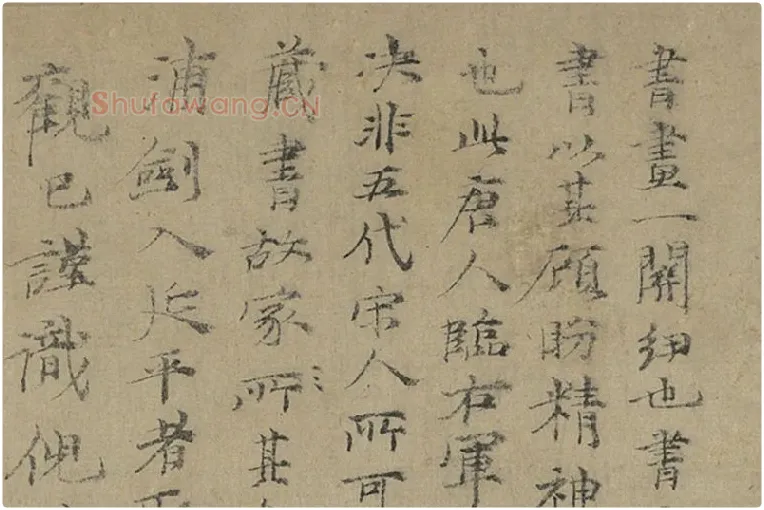 書畫一關紐也書
書以其顧盼精神
也此唐人臨右軍
决非五代宋人所可
藏書故家所其
浦劍入延平者
觀已謹識倪
Shufawang.CN